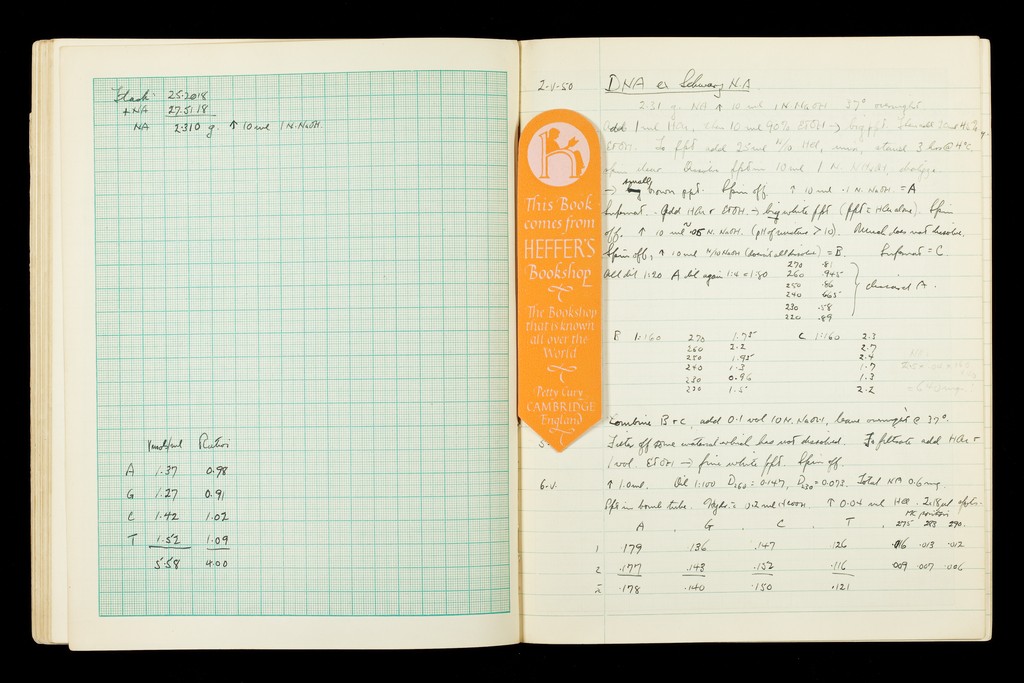 Flask 25.2018
+NA 27.5118
NA 2.310 g. ↑ 10 ml 1 N. NaOH.
μmol/ml Ratios
A 1.37 0.98
G 1.27 0.91
C 1.42 1.02
T 1.52 1.09
5.58 4.00
This Book
comes from
HEFFER'S
Bookshop
The Bookshop
that is known
all over the
World
Petty Cury
CAMBRIDGE
England
2-V-50 DNA ex Schwarz N.A.
2.31 g. NA ↑ 10 ml 1 N. NaOH 37° overnight
Add 1 ml HCl, then 10 ml 90% EtOH → big ppt.
EtOH. To ppt add 25 ml N/10 HCl, stand 3 hrs @ 4°C
spin down 10 ml 1 N.
→ small brown ppt. Spin off. ↑ 10 ml .1 N. NaOH. = A
Supernat. Add HCl + EtOH → big white ppt (ppt c HCl alone). Spin
off. ↑ 10 ml ~.05 N. NaOH. (pH of mixture > 10). Much does not dissolve.
Spin off, ↑ 10 ml N/10 NaOH (doesn't all dissolve) = B. Supernat = C.
All dil. 1:20 A dil again 1:4 = 1:80
270 .81
260 .945
250 .86
240 .665
230 .58
220 .89
discard A.
B 1:160 270 1.75 C 1:160 2.3
260 2.2 2.7
250 1.95 2.4
240 1.3 1.7
230 0.96 1.3
220 1.5 2.2
Combine B + C, add 0.1 vol 10 N. NaOH, leave overnight @ 37°.
5- Filter off some material which has not dissolved. To filtrate add HCl +
1 vol. EtOH → fine white ppt. Spin off.
6-V. ↑ 1.0 ml. Dil 1:100 D260 = 0.147, D230 = 0.073. Total NA 0.6 mg.
Ppt in bomb tube. 0.2 ml HCOOH. ↑ 0.04 ml HCl.
A G C T 275 283 290
1 .179 .136 .147 .126 .016 .013 .012
2 .177 .143 .152 .116 .009 .007 .006
x̄ .178 .140 .150 .121